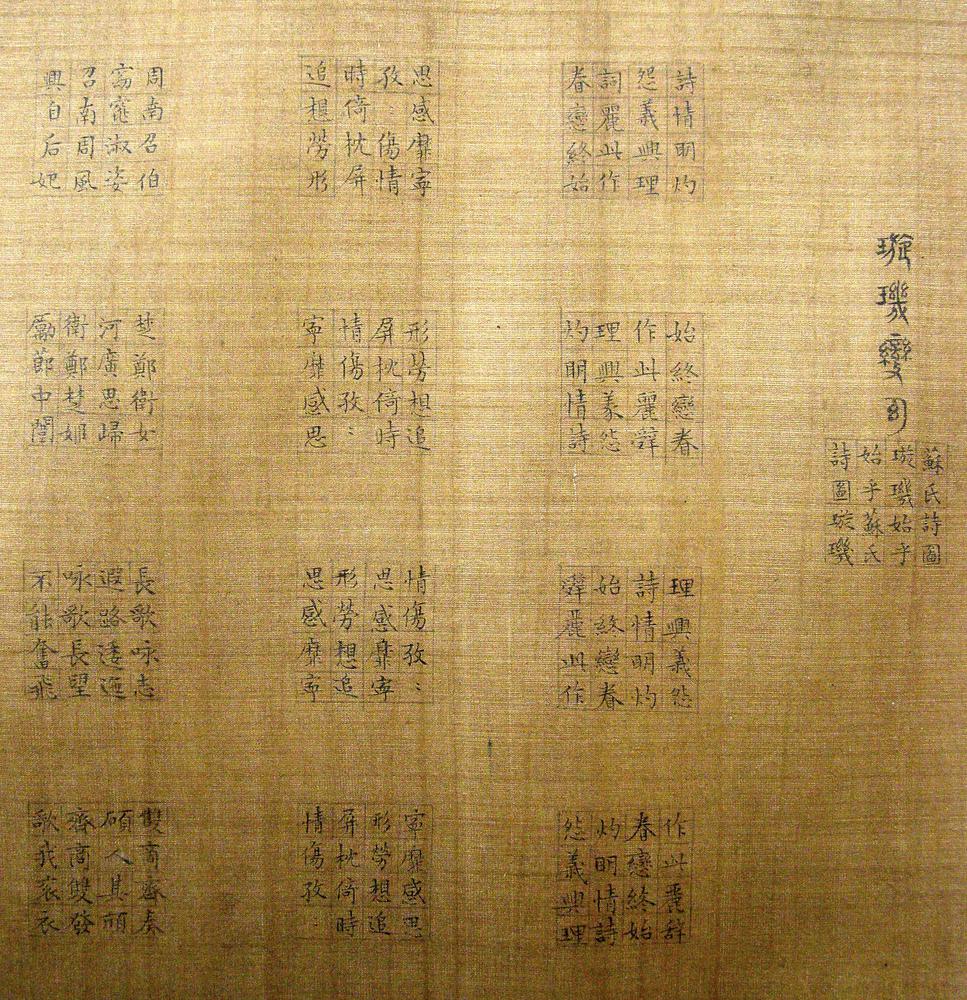 璇璣變幻
蘇氏詩圖
璇璣始乎
始乎蘇氏
詩圖璇璣
詩情明灼
怨義興理
詞麗此作
春戀終始
始終戀春
作此麗辭
理興義怨
灼明情詩
理興義怨
詩情明灼
始終戀春
辭麗此作
作此麗辭
春戀終始
灼明情詩
怨義興理
思感靡寧
孜:傷情
時倚枕屏
追想勞形
形勞想追
屏枕倚時
情傷孜:
寧靡感思
情傷孜:
思感靡寧
形勞想追
思感靡寧
寧靡感思
形勞想追
屏枕倚時
情傷孜:
周南召伯
窈窕淑姿
召南周風
興自后妃
楚鄭衛女
河廣思歸
衛鄭楚姬
勵節中闈
長歌咏志
遐路逶迤
咏歌長望
不能奮飛
雙商齊奏
碩人其頎
齊商雙發
歌我袞衣